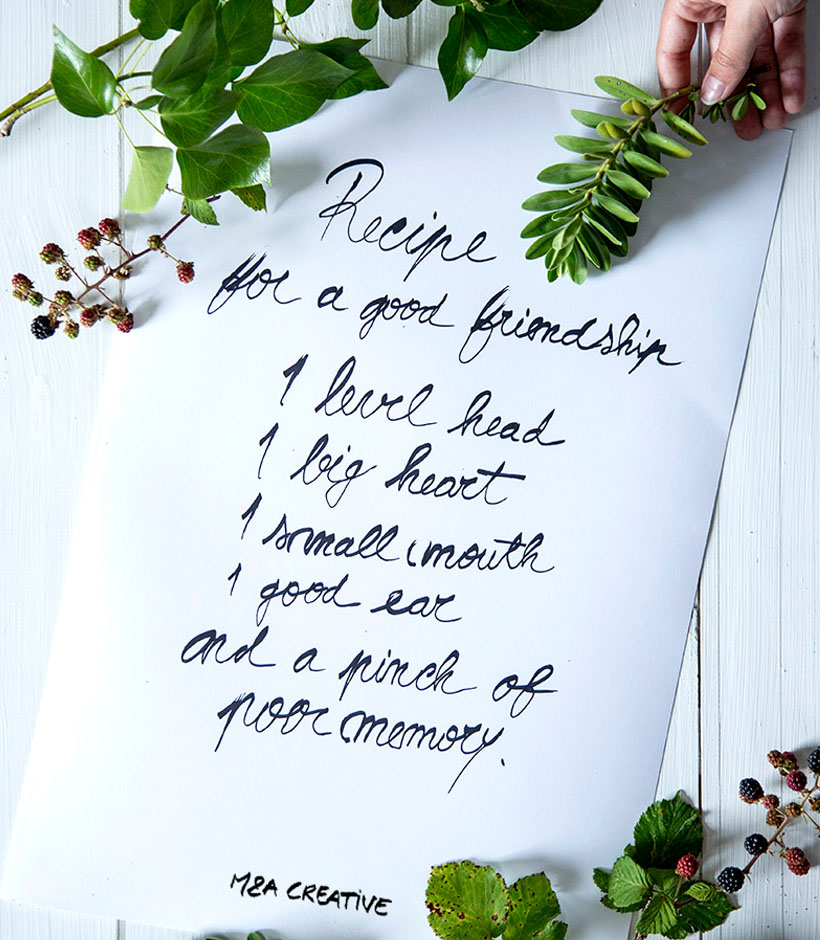 Recipe
for a good friendship
1 level head
1 big heart
1 small mouth
1 good ear
and a pinch of
poor memory.
M&A CREATIVE